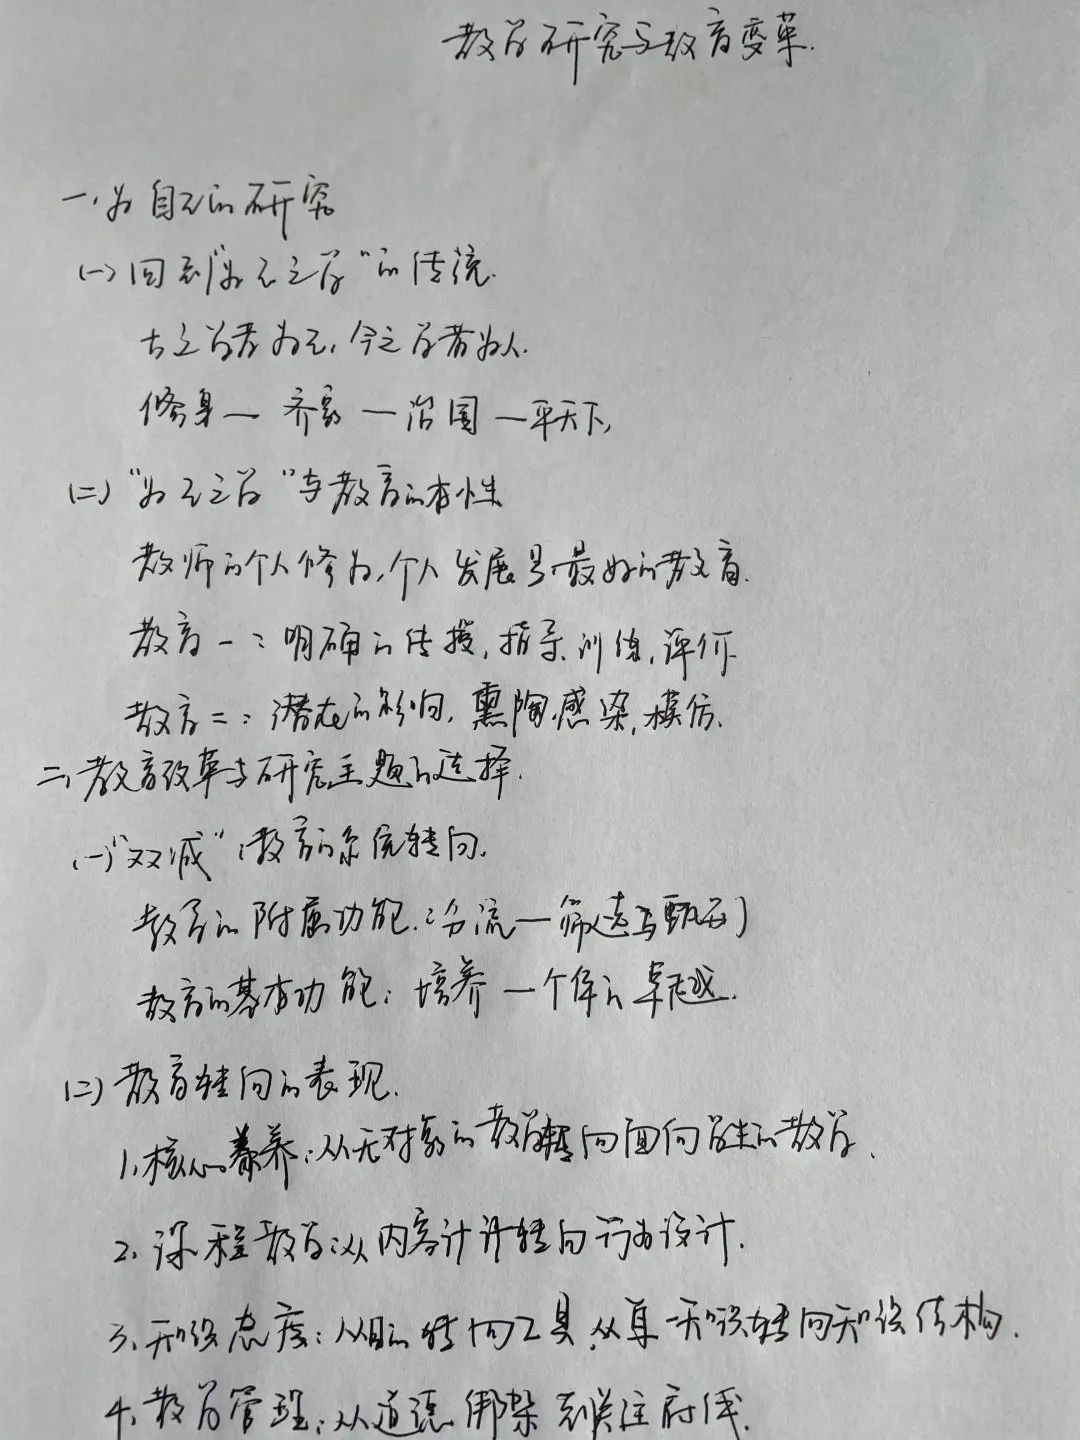 教学研究与教育变革.
一、为自己的研究
(一)回到"为己之学"的传统.
古之学者为己,今之学者为人.
修身—齐家—治国—平天下,
(二)"为己之学"与教育的本性
教师的个人修为,个人发展是最好的教育.
教育一:明确的传授,指导、训练,评价
教育二:潜在的影响,熏陶、感染,模仿.
二、教育改革与研究主题的选择.
(一)"双减":教育的系统转向.
教育的附属功能:分流—筛选与甄别
教育的基本功能:培养—个体的卓越.
(二)教育转向的表现.
1、核心素养:从无对象的教学转向面向学生的教学.
2、课程教学:从内容设计转向行为设计.
3、知识态度:从目的转向工具,从单一知识转向知识结构.
4、教学管理:从道德绑架到关注底线.